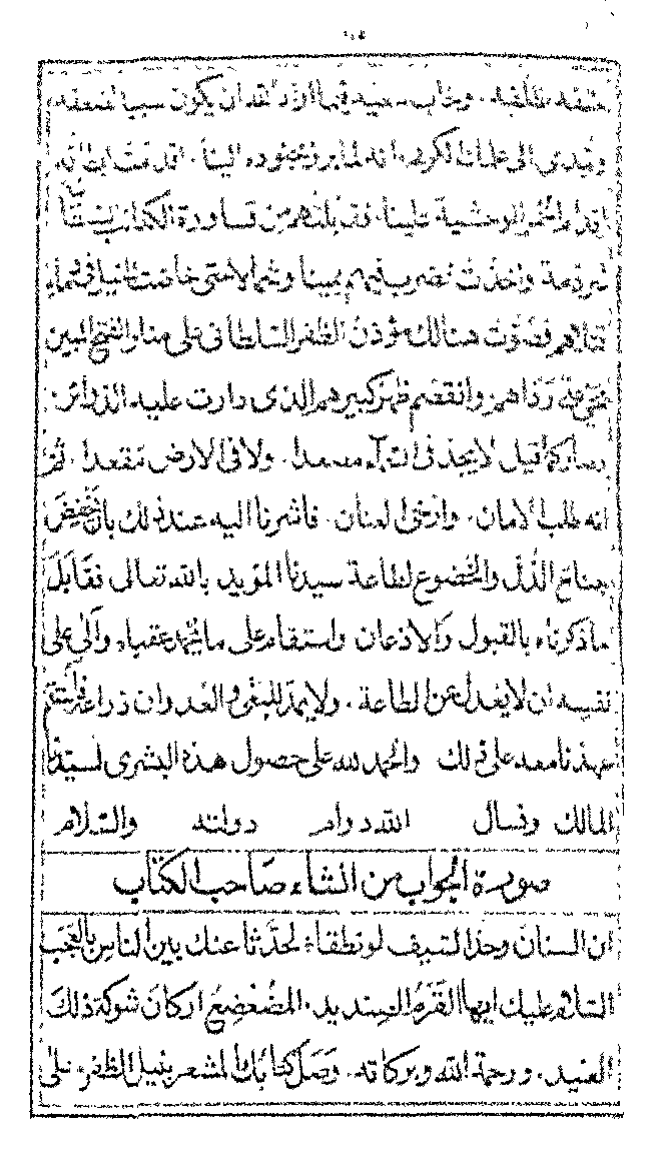 وخاب سعيه فيما اراد لقد ان يكون سببا لضعفه
ويهدى الى علمك الكريم انه لما برز بجنوده الينا. اقدمت ابطاله
اقدام الحمر الوحشية علينا. فقابلناهم من قساورة الكتائب
شرذمة واخذت تضرب فيهم يمينا وشمالا حتى خاضت الخيل فى دماء
قتلاهم فصوت هنالك مؤذن الظفر السلطانى على منار الفتح المبين
رداهم وانقصم ظهر كبيرهم الذى دارت عليه الدوائر.
وصار كما قيل لا يجد فى السماء مصعدا. ولا فى الارض مقعدا. ثم
انه طلب الامان. وارخى العنان. فاشرنا اليه عند ذلك بان يخفض
جناح الذل والخضوع لطاعة سيدنا المؤيد بالله تعالى فقابل
ما ذكرناه بالقبول والاذعان واستقام على ما تحمد عقباه وآلى على
نفسه ان لا يعدل عن الطاعة. ولا يمد للبغى والعدوان ذراعه
عهدنا معه على ذلك والحمد لله على حصول هذه البشرى لسيدنا
المالك ونسال الله دوام دولته والسلام
صورة الجواب من انشاء صاحب الكتاب
ان السنان وحد السيف لو نطقا، لحدثا عنك بين الناس بالعجب
السلام عليك ايها القرم الصنديد. المضعضع اركان شوكة ذلك
العنيد. ورحمة الله وبركاته. وصل كتابك المشعر بنيل الظفر. على